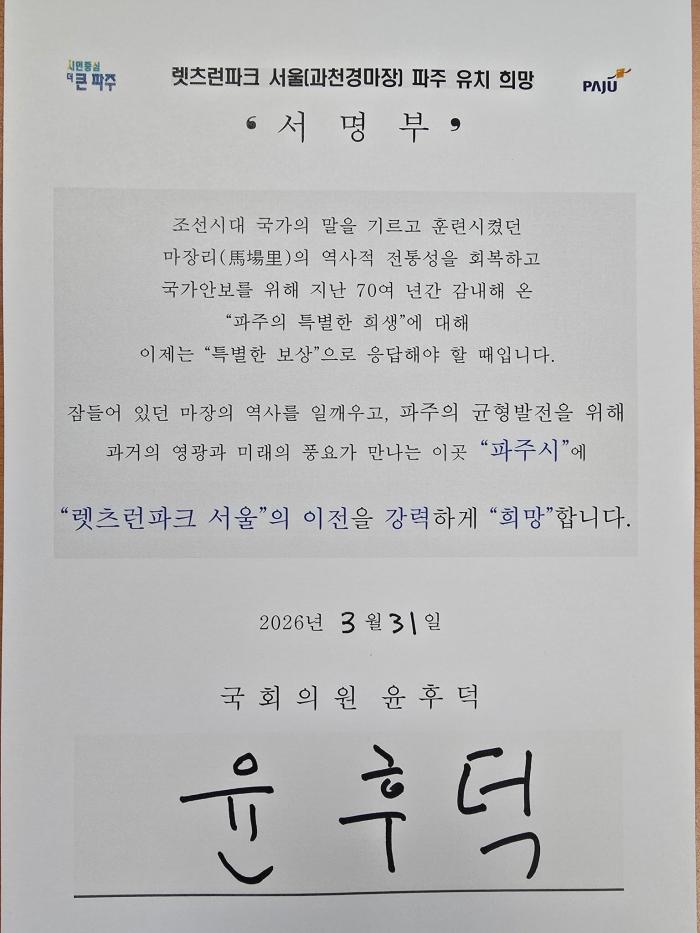 시민중심
더 큰 파주
렛츠런파크 서울(과천경마장) 파주 유치 희망
PAJU
‘서 명 부’
조선시대 국가의 말을 기르고 훈련시켰던
마장리(馬場里)의 역사적 전통성을 회복하고
국가안보를 위해 지난 70여 년간 감내해 온
“파주의 특별한 희생”에 대해
이제는 “특별한 보상”으로 응답해야 할 때입니다.
잠들어 있던 마장의 역사를 일깨우고, 파주의 균형발전을 위해
과거의 영광과 미래의 풍요가 만나는 이곳 “파주시”에
“렛츠런파크 서울”의 이전을 강력하게 “희망”합니다.
2026년 3월 31일
국회의원 윤후덕
윤 후 덕